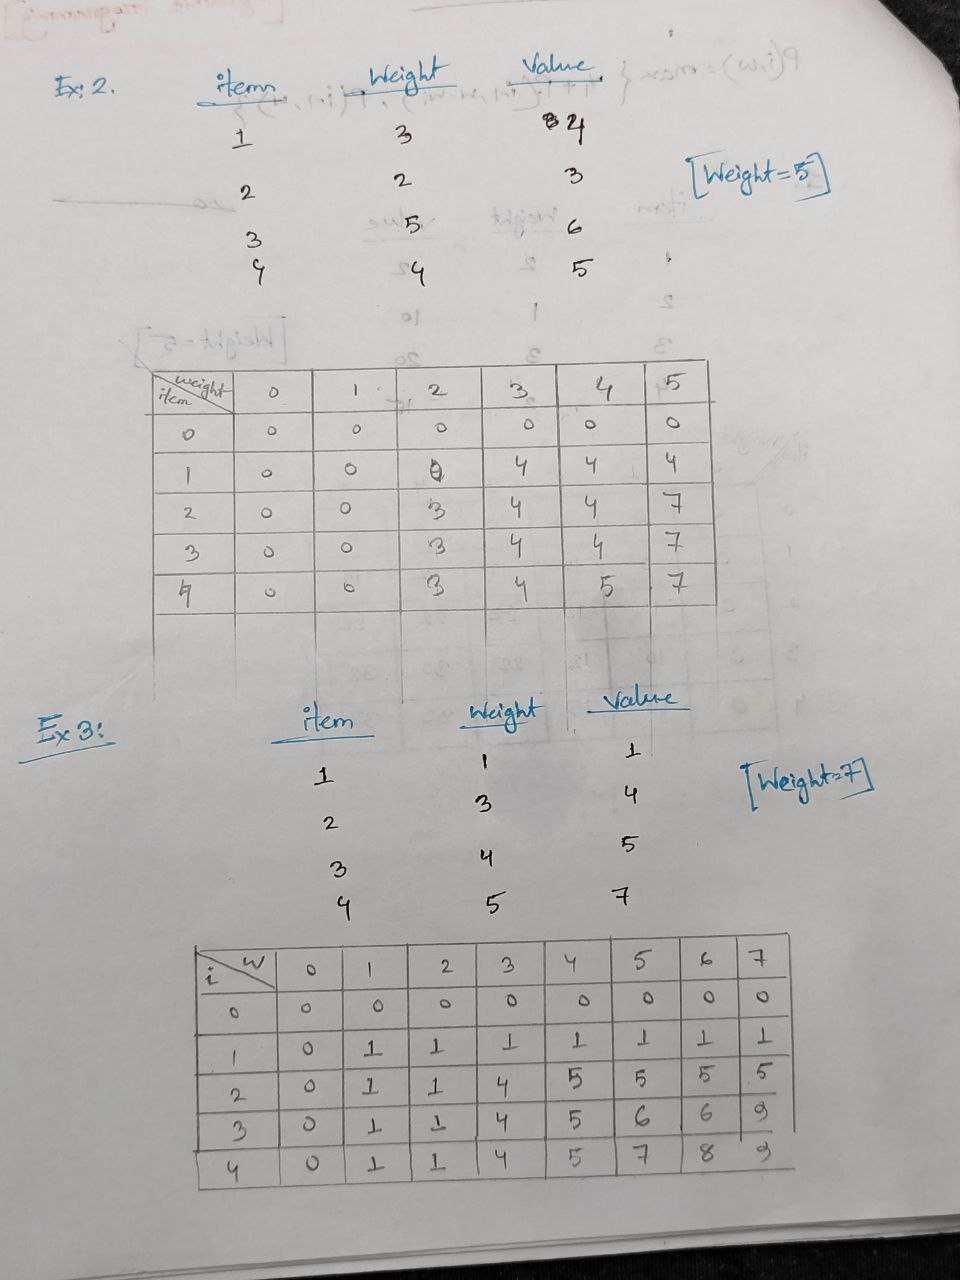 Ex: 2. item Weight Value
1 3 4
2 2 3
3 5 6
4 4 5
[Weight=5]
weight
item 0 1 2 3 4 5
0 0 0 0 0 0 0
1 0 0 0 4 4 4
2 0 0 3 4 4 7
3 0 0 3 4 4 7
4 0 0 3 4 5 7
Ex 3: item Weight Value
1 1 1
2 3 4
3 4 5
4 5 7
[Weight=7]
i W 0 1 2 3 4 5 6 7
0 0 0 0 0 0 0 0 0
1 0 1 1 1 1 1 1 1
2 0 1 1 4 5 5 5 5
3 0 1 1 4 5 6 6 9
4 0 1 1 4 5 7 8 9